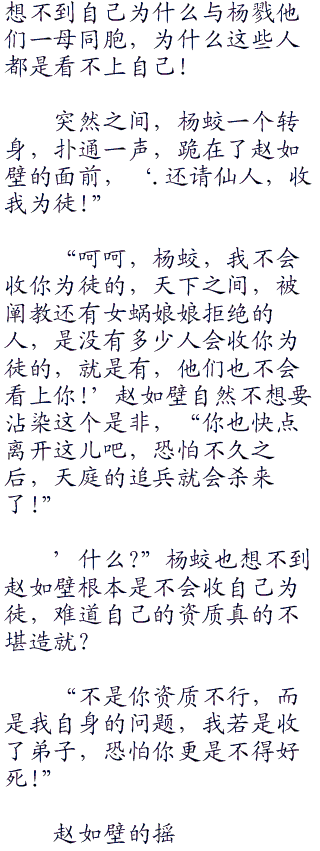 想不到自己为什么与杨戮他
们一母同胞，为什么这些人
都是看不上自己！
突然之间，杨蛟一个转
身，扑通一声，跪在了赵如
壁的面前，‘.还请仙人，收
我为徒！”
“呵呵，杨蛟，我不会
收你为徒的，天下之间，被
阐教还有女蜗娘娘拒绝的
人，是没有多少人会收你为
徒的，就是有，他们也不会
看上你！’赵如壁自然不想要
沾染这个是非，“你也快点
离开这儿吧，恐怕不久之
后，天庭的追兵就会杀来
了！”
’什么？”杨蛟也想不到
赵如壁根本是不会收自己为
徒，难道自己的资质真的不
堪造就？
“不是你资质不行，而
是我自身的问题，我若是收
了弟子，恐怕你更是不得好
死！”
赵如壁的摇